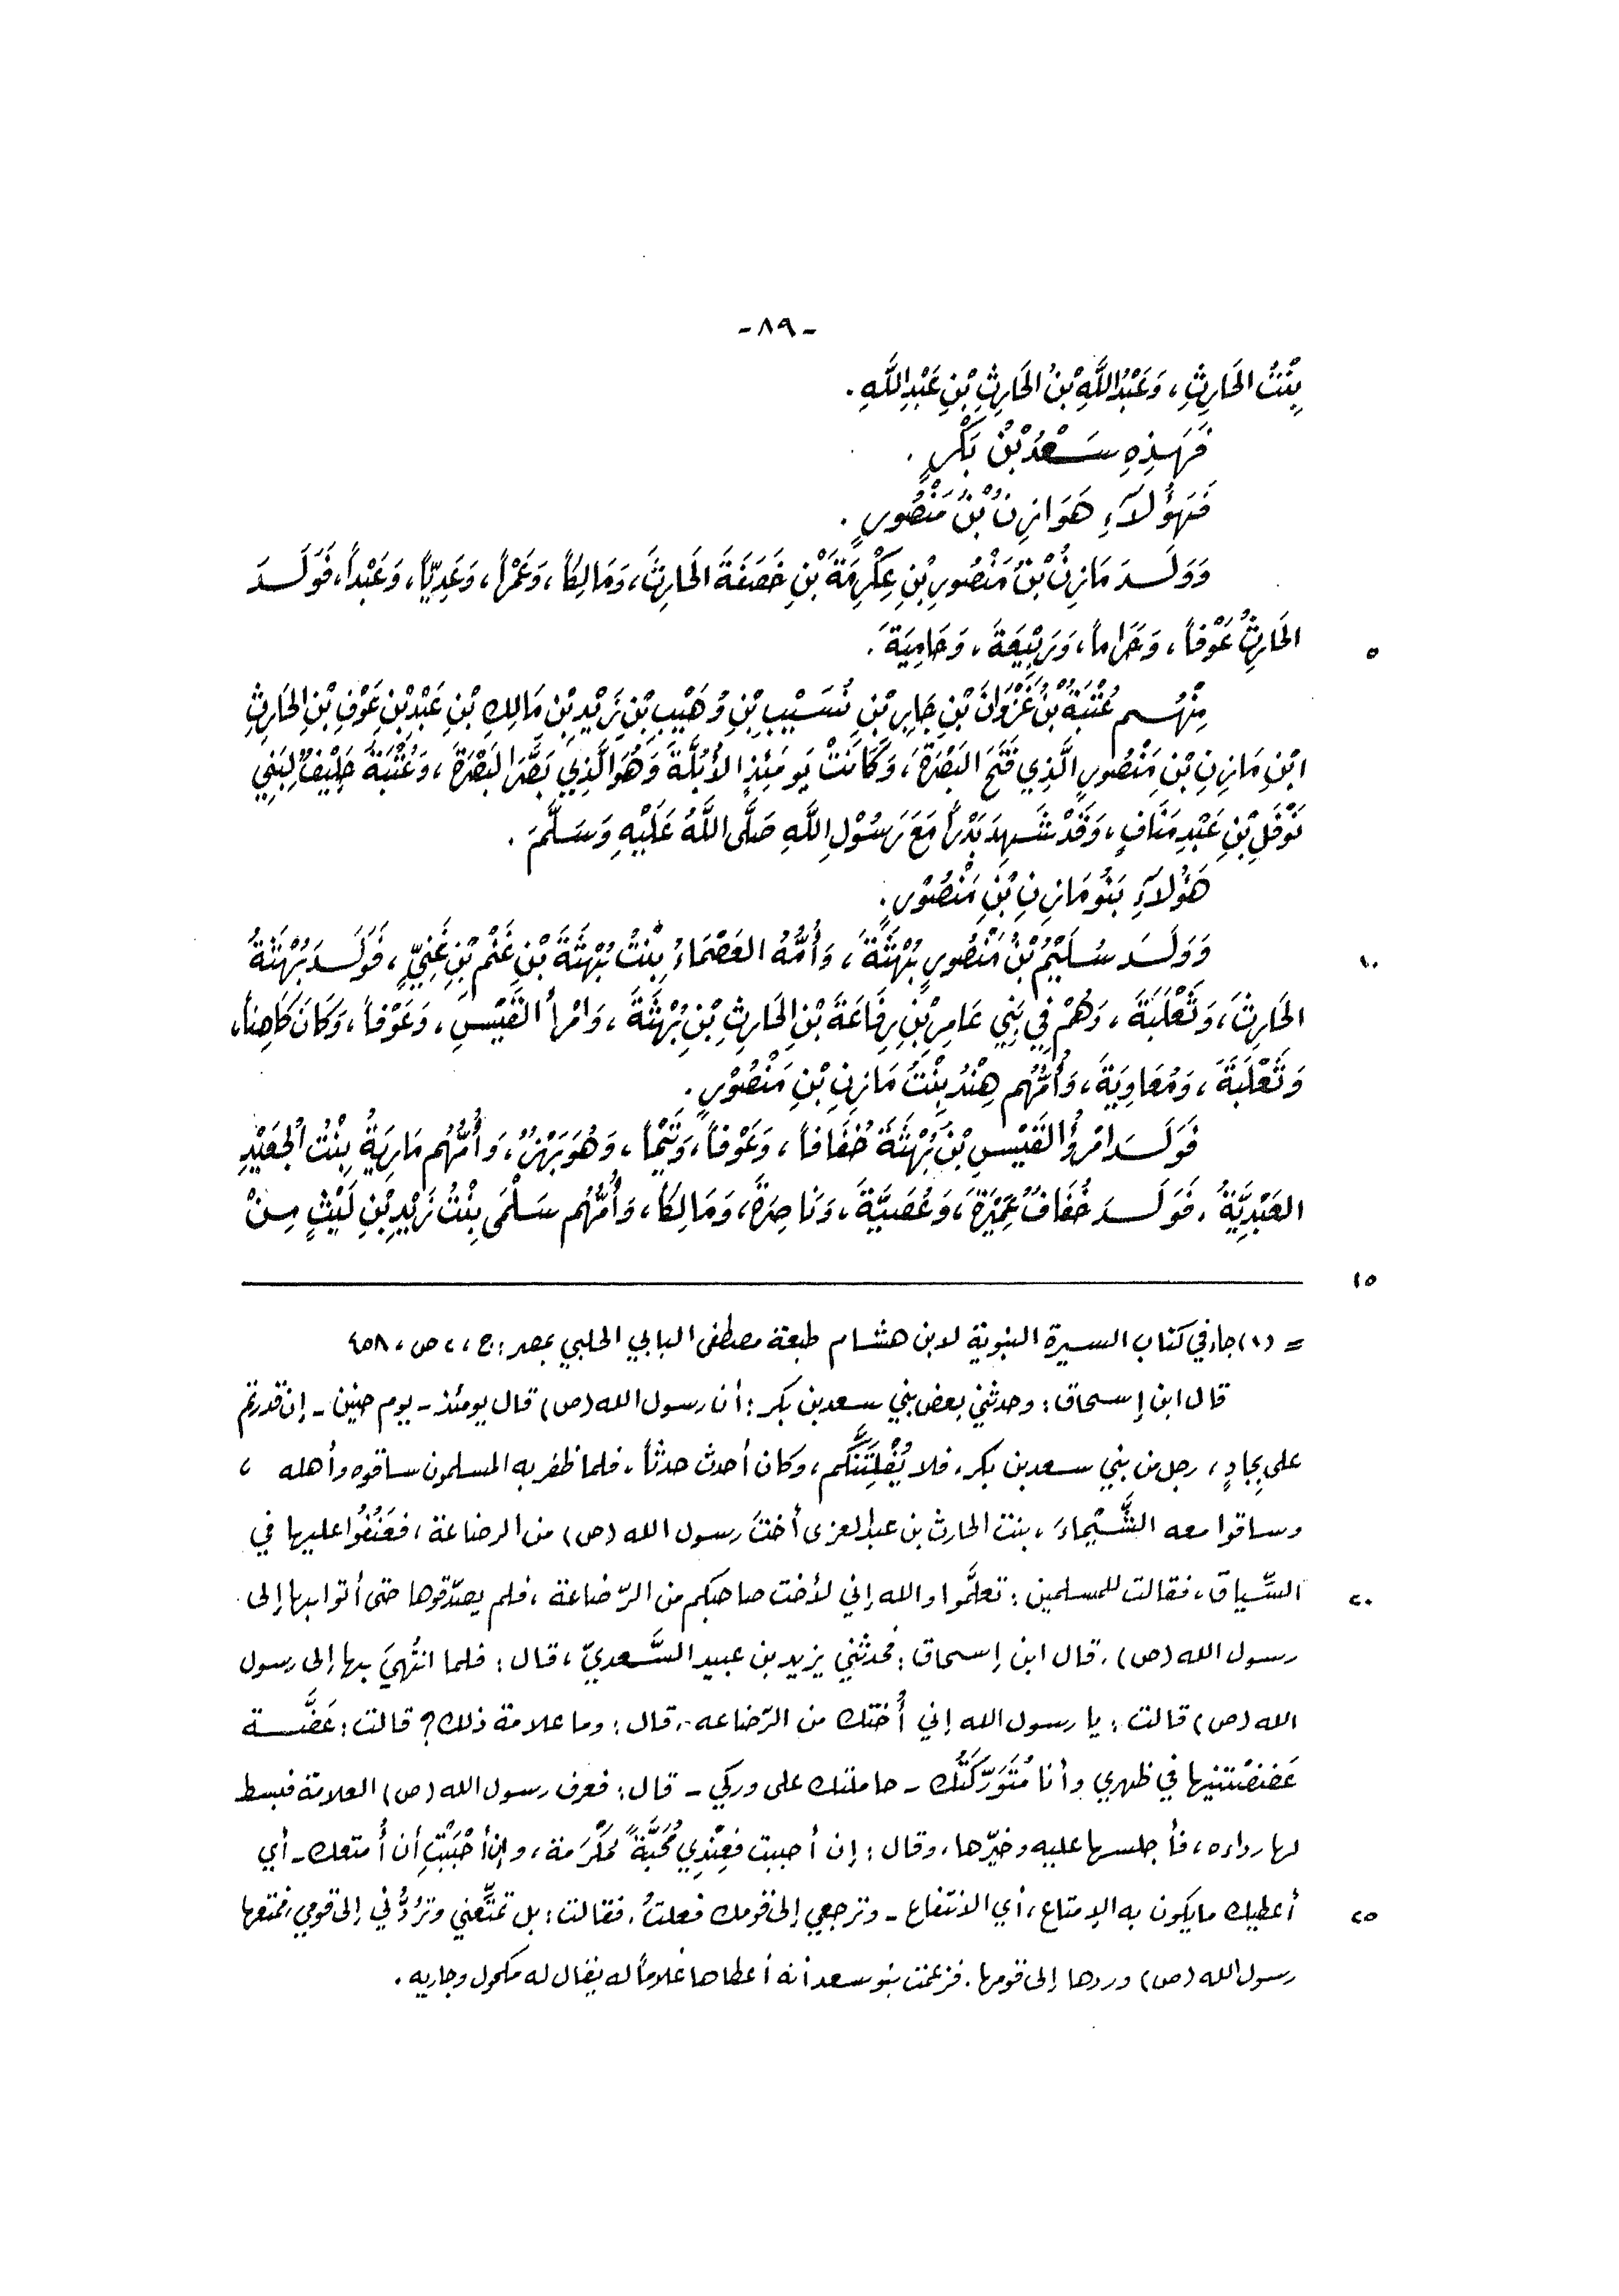 -٨٩-
بِنْتُ الحَارِثِ، وَعَبْدُ اللَّهِ بْنُ الحَارِثِ بْنِ عَبْدِ اللَّهِ.
فَهَذِهِ سَعْدُ بْنُ بَكْرٍ.
فَهَؤُلاَءِ هَوَازِنُ بْنُ مَنْصُورٍ.
وَوَلَدَ مَازِنُ بْنُ مَنْصُورِ بْنِ عِكْرِمَةَ بْنِ خَصَفَةَ الحَارِثَ، وَمَالِكاً، وَعَمْراً، وَعَدِيّاً، وَعَبْداً، فَوَلَدَ
الحَارِثُ عَوْفاً، وَحَرَاماً، وَرَبِيْعَةَ، وَحَامِيَةَ.
٥
مِنْهُم عُتْبَةُ بْنُ غَزْوَانَ بْنِ جَابِرِ بْنِ نُسَيْبِ بْنِ وُهَيْبِ بْنِ زَيْدِ بْنِ مَالِكِ بْنِ عَبْدِ بْنِ عَوْفِ بْنِ الحَارِثِ
ابْنِ مَازِنِ بْنِ مَنْصُورٍ الَّذِي فَتَحَ البَصْرَةَ، وَكَانَتْ يَومَئِذٍ الأُبُلَّةَ وَهُوَ الَّذِي بَصَّرَ البَصْرَةَ، وَعُتْبَةُ حَلِيْفٌ لِبَنِي
نَوْفَلِ بْنِ عَبْدِ مَنَافٍ، وَقَدْ شَهِدَ بَدْراً مَعَ رَسُوْلِ اللَّهِ صَلَّى اللَّهُ عَلَيْهِ وَسَلَّمَ.
هَؤُلاَءِ بَنُو مَازِنِ بْنِ مَنْصُوْرٍ.
وَوَلَدَ سُلَيْمُ بْنُ مَنْصُورٍ بُهْثَةَ، وَأُمُّهُ العَصْمَاءُ بِنْتُ بُهْثَةَ بْنِ غَنْمِ بْنِ غَنِيٍّ، فَوَلَدَ بُهْثَةُ
١٠
الحَارِثَ، وَثَعْلَبَةَ، وَهُمْ فِي بَنِي عَامِرِ بْنِ رِفَاعَةَ بْنِ الحَارِثِ بْنِ بُهْثَةَ، وَامْرأَ القَيْسِ، وَعَوْفاً، وَكَانَ كَاهِناً،
وَثَعْلَبَةَ، وَمُعَاوِيَةَ، وَأُمُّهُم هِنْدُ بِنْتُ مَازِنِ بْنِ مَنْصُوْرٍ.
فَوَلَدَ امْرُؤُ القَيْسِ بْنُ بُهْثَةَ خُفَافاً، وَعَوْفاً، وَتَيْماً، وَهُوَ بَهْزٌ، وَأُمُّهُم مَارِيَةُ بِنْتُ الجُعَيْدِ
العَبْدِيَّةُ. فَوَلَدَ خُفَافٌ عَمِيْرَةَ، وَعُصَيَّةَ، وَنَاصِرَةَ، وَمَالِكاً، وَأُمُّهُم سَلْمَى بِنْتُ زَيْدِ بْنِ لَيْثٍ مِنْ
١٥
= (١) جاء في كتاب السيرة النبوية لابن هشام طبعة مصطفى البابي الحلبي بمصر: ج، ٢، ص، ٤٥٨
قال ابن إسحاق: وحدثني بعض بني سعد بن بكر: أن رسول الله (ص) قال يومئذ - يوم حنين - إن قدرتم
على بِجادٍ، رجل من بني سعد بن بكر، فلا يُفْلِتَنَّكُم، وكان أحدث حدثاً، فلما ظفر به المسلمون ساقوه وأهله ،
وساقوا معه الشَّيْمَاءَ، بنت الحارث بن عبد العزى أختَ رسول الله (ص) من الرضاعة، فعَنُفُوا عليها في
السِّياق، فقالت للمسلمين: تعلَّموا والله إني لأخت صاحبكم من الرّضاعة، فلم يصدّقوها حتى أتوا بها إلى
٢٠
رسول الله (ص). قال ابن إسحاق: فحدثني يزيد بن عبيد السَّعديّ، قال: فلما انتُهيَ بها إلى رسول
الله (ص) قالت: يا رسول الله إني أُختك من الرّضاعه، قال: وما علامة ذلك؟ قالت: عَضَّة
عَضضْتنيها في ظهري وأنا مُتَوَرّكَتُك - حاملتك على وركي - قال: فعرف رسول الله (ص) العلامة فبسط
لها رداءه، فأجلسها عليه وخيّرها، وقال: إن أحببت فعِنْدِي مُحَبَّةً مُكْرَمة، وإن أحْبَبْتِ أن أُمتعك - أي
أعطيك ما يكون به الإمتاع، أي الانتفاع - وترجعي إلى قومك فعلتُ. فقالت: بل تمتّعني وترُدُّني إلى قومي، فمتعها
٢٥
رسول الله (ص) وردها إلى قومها. فزعمت بنو سعد أنه أعطاها غلاماً له يقال له مكحول وجاريه.